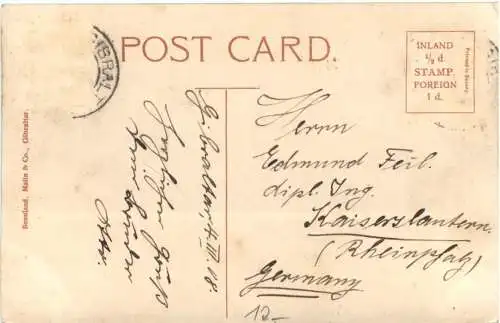 POST CARD.
INLAND
½ d.
STAMP.
FOREIGN
1 d.
Printed in Saxony
Beanland, Malin & Co., Gibraltar.
GIBRAL
Gibraltar, III. 08.
Herzlichen Gruß
Herrn
Edmund Feil.
dipl. Ing.
Kaiserslautern.
(Rheinpfalz)
Germany
12.-